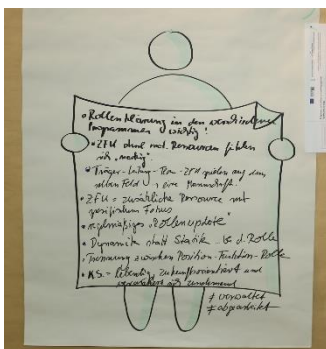 • Rollenklärung in den verschiedenen
Programmen wichtig!
• ZFU ohne mat. Ressourcen fühlen
sich "nackig"
• Träger-Leitung-Team-ZFU spielen auf dem
selben Feld: eine Mannschaft.
• ZFU = zusätzliche Ressource mit
spezifischem Fokus
• regelmäßiges "Rollenupdate"
• Dynamik statt Statik d. Rolle
• Trennung zwischen Position-Funktion-Rolle
• KS = lebendig, zukunftsorientiert und
und
≠ verwaltet
≠ abgearbeitet